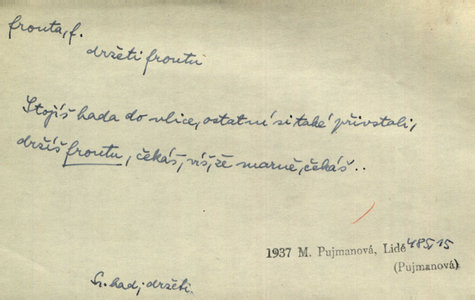 fronta, f.
držeti frontu
Stojíš hada do ulice, ostatní si také přivstali,
držíš frontu, čekáš, víš, že marně, čekáš..
1937 M. Pujmanová, Lidé 485,15
(Pujmanová)
Sr. had; držeti.